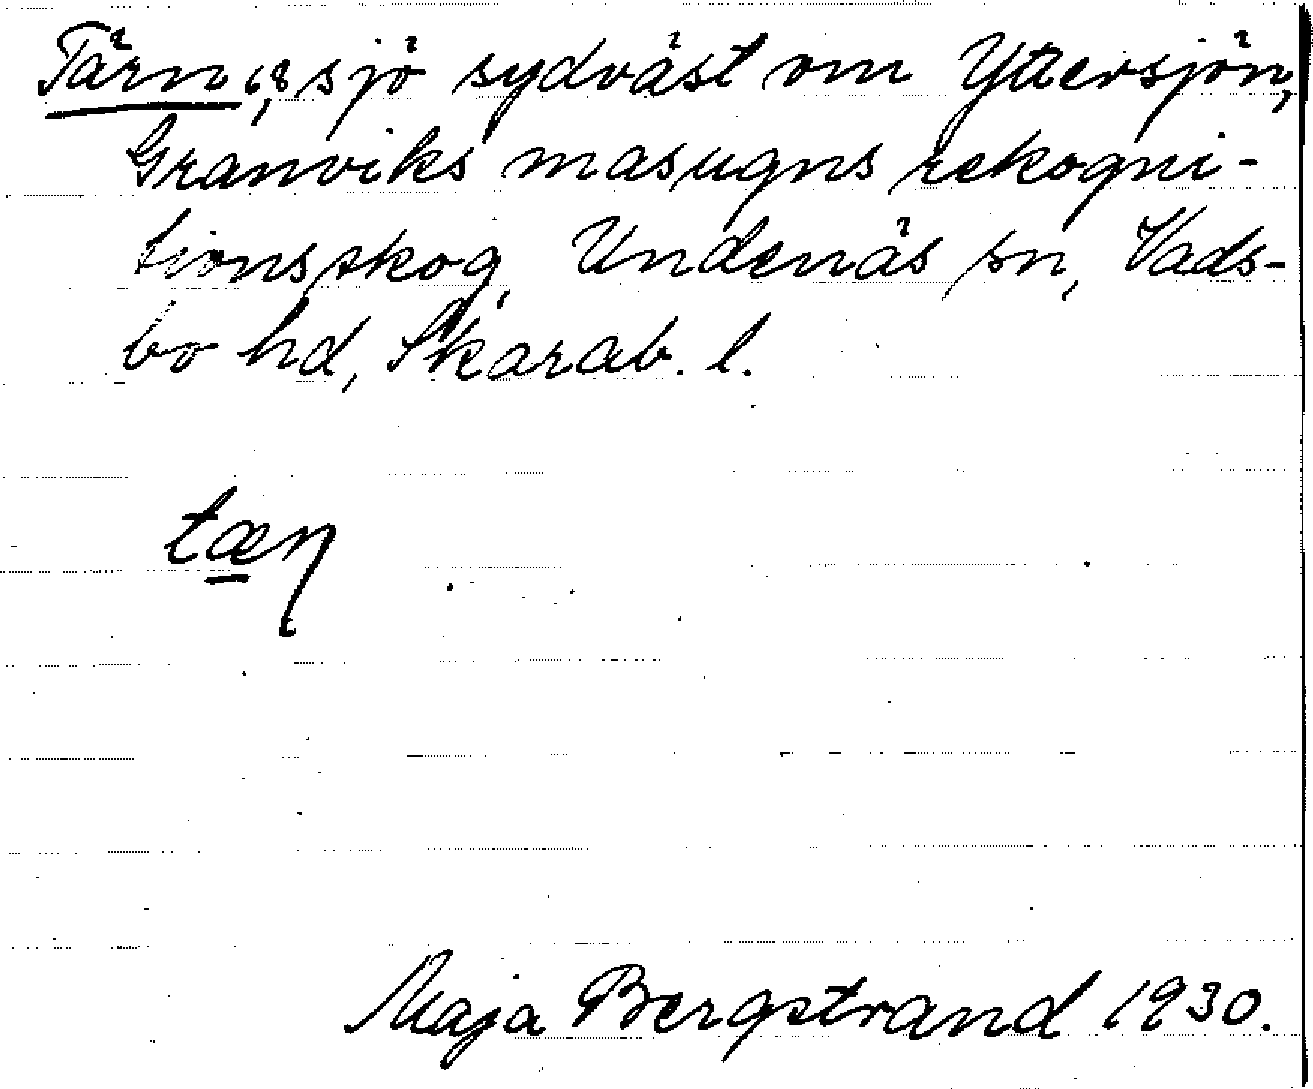 Tärn 68, sjö sydväst om Yttersjön,
Granviks masugns rekogni-
tionsskog, Undenäs sn, Vads-
bo hd, Skarab. l.
tæɳ
Maja Bergstrand 1930.